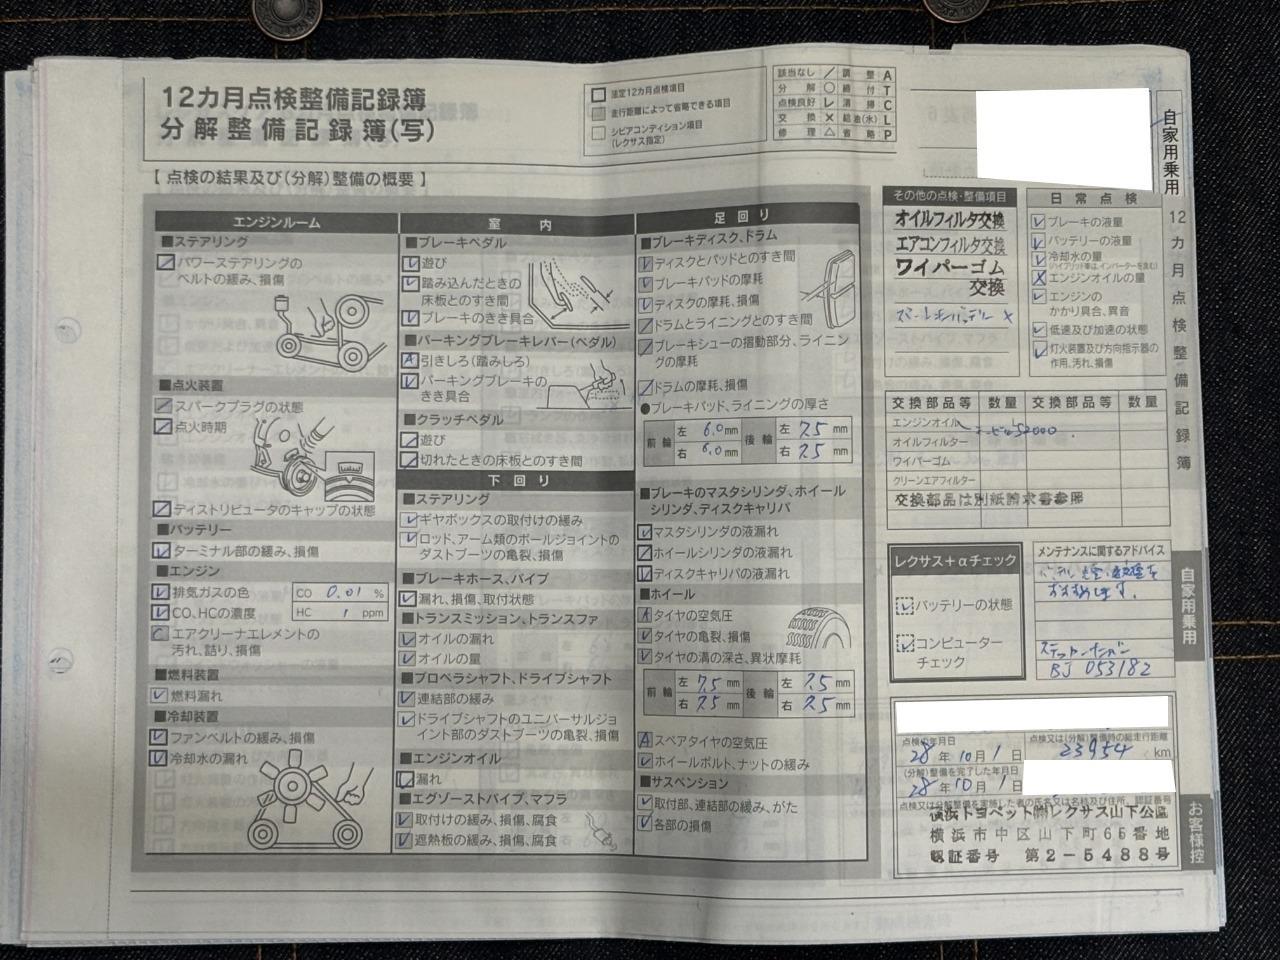 12カ月点検整備記録簿
分解整備記録簿(写)
法定12カ月点検項目
走行距離によって省略できる項目
シビアコンディション項目
(レクサス指定)
該当なし ／ 調整 A
分解 ○ 締付 T
点検良好 レ 清掃 C
交換 × 給油(水) L
修理 △ 省略 P
自家用乗用
12カ月点検整備記録簿
自家用乗用
お客様控
【 点検の結果及び(分解)整備の概要 】
エンジンルーム
■ステアリング
パワーステアリングの
ベルトの緩み、損傷
■点火装置
スパークプラグの状態
点火時期
ディストリビュータのキャップの状態
■バッテリー
ターミナル部の緩み、損傷
■エンジン
排気ガスの色
CO、HCの濃度
CO 0.01 %
HC 1 ppm
エアクリーナエレメントの
汚れ、詰り、損傷
■燃料装置
燃料漏れ
■冷却装置
ファンベルトの緩み、損傷
冷却水の漏れ
室内
■ブレーキペダル
遊び
踏み込んだときの
床板とのすき間
ブレーキのきき具合
■パーキングブレーキレバー(ペダル)
引きしろ(踏みしろ)
パーキングブレーキの
きき具合
■クラッチペダル
遊び
切れたときの床板とのすき間
下回り
■ステアリング
ギヤボックスの取付けの緩み
ロッド、アーム類のボールジョイントの
ダストブーツの亀裂、損傷
■ブレーキホース、パイプ
漏れ、損傷、取付状態
■トランスミッション、トランスファ
オイルの漏れ
オイルの量
■プロペラシャフト、ドライブシャフト
連結部の緩み
ドライブシャフトのユニバーサルジョ
イント部のダストブーツの亀裂、損傷
■エンジンオイル
漏れ
■エグゾーストパイプ、マフラ
取付けの緩み、損傷、腐食
遮熱板の緩み、損傷、腐食
足回り
■ブレーキディスク、ドラム
ディスクとパッドとのすき間
ブレーキパッドの摩耗
ディスクの摩耗、損傷
ドラムとライニングとのすき間
ブレーキシューの摺動部分、ライニン
グの摩耗
ドラムの摩耗、損傷
●ブレーキパッド、ライニングの厚さ
前輪 左 6.0 mm 後輪 左 7.5 mm
右 6.0 mm 右 7.5 mm
■ブレーキのマスタシリンダ、ホイール
シリンダ、ディスクキャリパ
マスタシリンダの液漏れ
ホイールシリンダの液漏れ
ディスクキャリパの液漏れ
■ホイール
タイヤの空気圧
タイヤの亀裂、損傷
タイヤの溝の深さ、異状摩耗
前輪 左 7.5 mm 後輪 左 7.5 mm
右 7.5 mm 右 7.5 mm
スペアタイヤの空気圧
ホイールボルト、ナットの緩み
■サスペンション
取付部、連結部の緩み、がた
各部の損傷
その他の点検・整備項目
オイルフィルタ交換
エアコンフィルタ交換
ワイパーゴム
交換
日常点検
ブレーキの液量
バッテリーの液量
冷却水の量
(ハイブリッド車は、インバーターを含む)
エンジンオイルの量
エンジンの
かかり具合、異音
低速及び加速の状態
灯火装置及び方向指示器の
作用、汚れ、損傷
交換部品等 数量 交換部品等 数量
エンジンオイル
オイルフィルター
ワイパーゴム
クリーンエアフィルター
交換部品は別紙請求書参照
レクサス+αチェック
バッテリーの状態
コンピューター
チェック
メンテナンスに関するアドバイス
BJ 053182
点検の年月日
28 年 10 月 1 日
点検又は(分解)整備時の総走行距離
23954 km
(分解)整備を完了した年月日
28 年 10 月 1 日
点検又は分解整備を実施した者の氏名又は名称及び住所、認証番号
横浜トヨペット㈱レクサス山下公園
横浜市中区山下町65番地
認証番号 第2-5488号